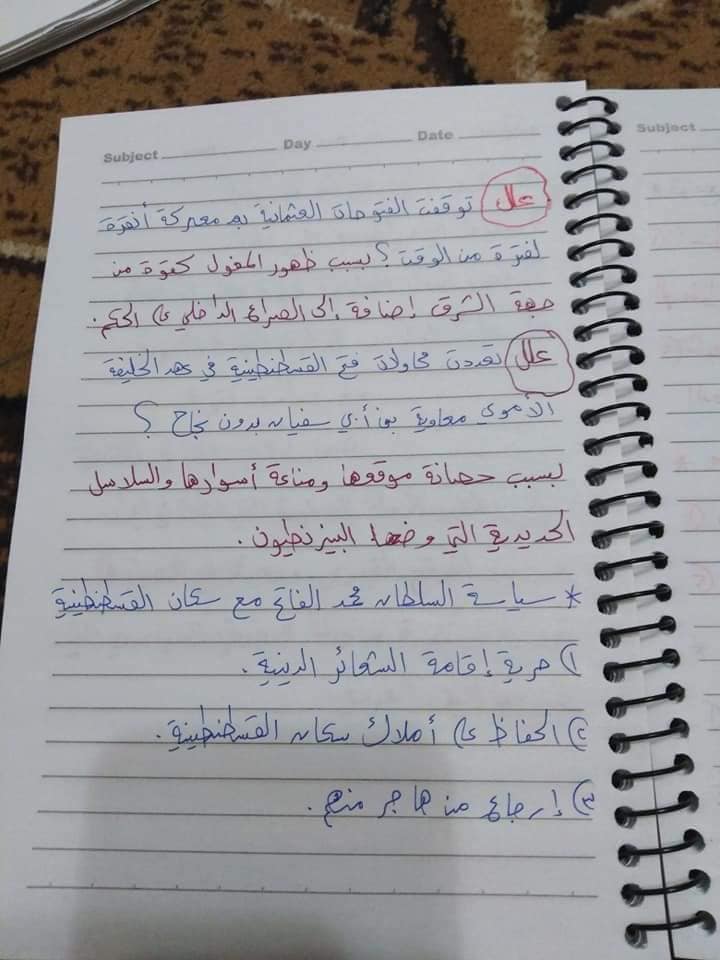 Subject Day Date
Subject
علل توقفت الفتوحات العثمانية بعد معركة أنقرة
لفترة من الوقت ؟ بسبب ظهور المغول كقوة من
جهة الشرق إضافة إلى الصراع الداخلي على الحكم.
علل تعددت محاولات فتح القسطنطينية في عهد الخليفة
الأموي معاوية بن أبي سفيان بدون نجاح ؟
لسبب حصانة موقعها ومناعة أسوارها والسلاسل
الحديدية التي وضعها البيزنطيون.
* سياسة السلطان محمد الفاتح مع سكان القسطنطينية
١) حرية إقامة الشعائر الدينية.
٢) الحفاظ على أملاك سكان القسطنطينية.
٣) إرجاع من هاجر منهم.